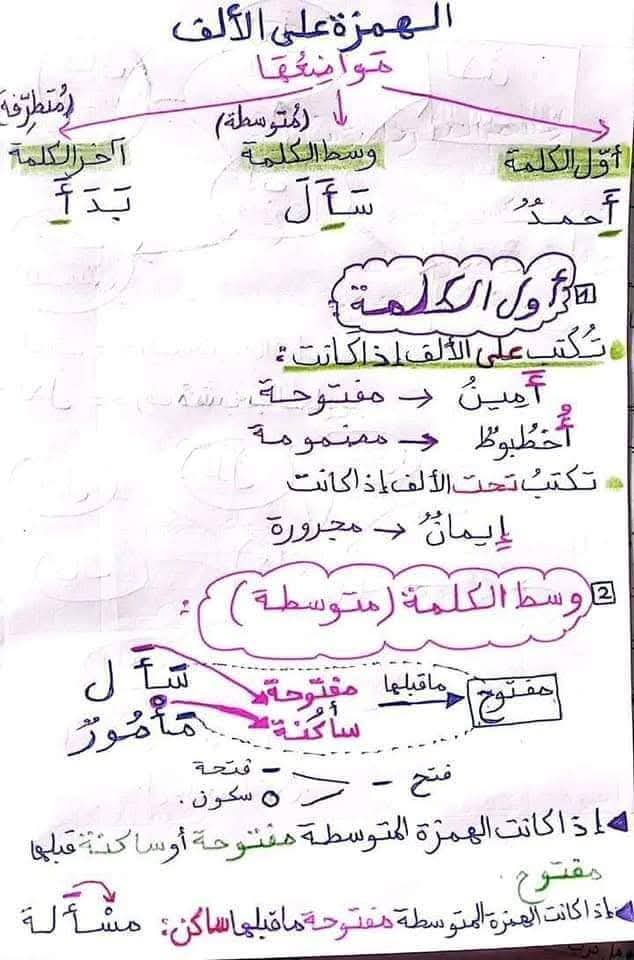 الهمزة على الألف
مواضعها
أوّل الكلمة
(مُتوسطة)
وسط الكلمة
(مُتطرّفة)
آخر الكلمة
أَحمدُ
سَأَلَ
بَدَأَ
1 أول الكلمة
تُكتب على الألف إذا كانت :
أَمِينُ → مفتوحة
أُخطُبوطُ → مضمومة
تكتبُ تحت الألف إذا كانت
إِيمانٌ → مجرورة
2 وسط الكلمة (متوسطة) :
سَأَل مفتوحة ما قبلها مفتوح
مَأْمُورٌ ساكنة
فتح – فتحة
سكون .
إذا كانت الهمزة المتوسطة مفتوحة أو ساكنة قبلها
مفتوح .
إذا كانت الهمزة المتوسطة مفتوحة ما قبلها ساكن : مسْأَلة